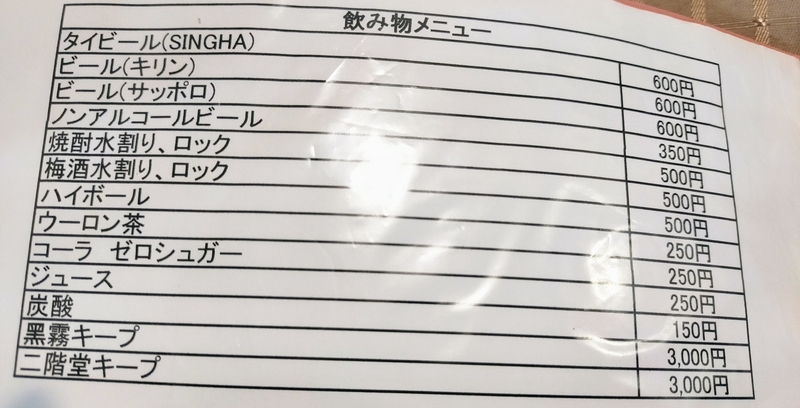 飲み物メニュー
タイビール(SINGHA) 600円
ビール(キリン) 600円
ビール(サッポロ) 600円
ノンアルコールビール 350円
焼酎水割り、ロック 500円
梅酒水割り、ロック 500円
ハイボール 500円
ウーロン茶 250円
コーラ ゼロシュガー 250円
ジュース 250円
炭酸 150円
黒霧キープ 3,000円
二階堂キープ 3,000円